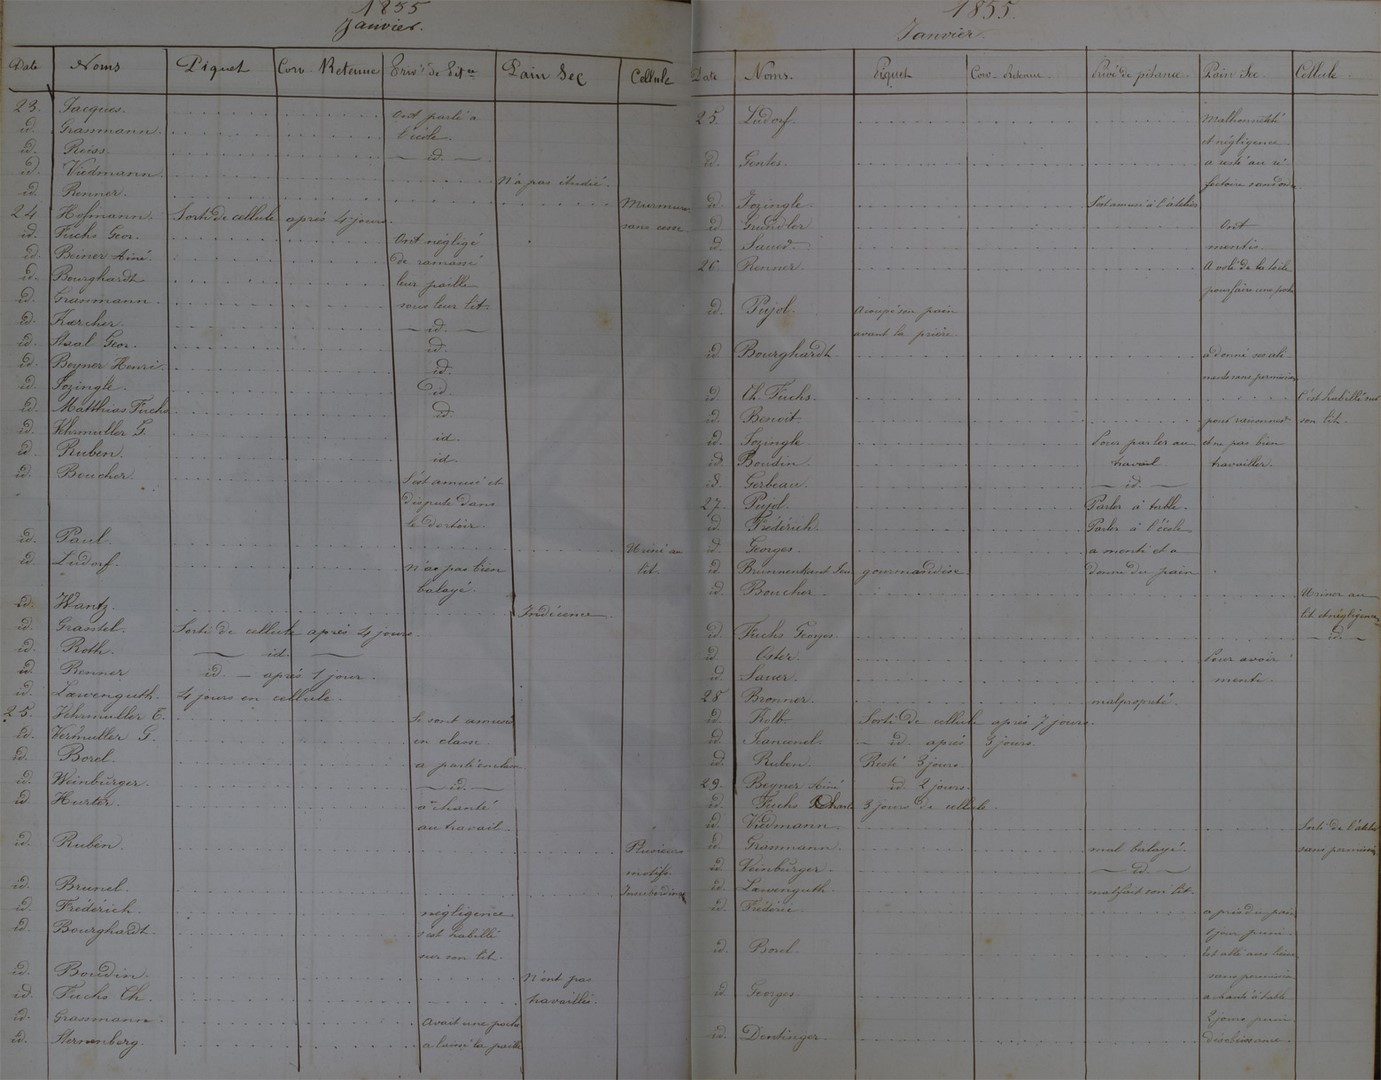 1855
Janvier.
Date Noms Piquet Corv. Retenue Privé de Pit.ce Pain Sec Cellule
23. Jacques. Ont parlé à
id. Grasmann. l'école.
id. Reiss. id.
id. Viedmann. N'a pas étudié.
id. Renner. Murmure
24 Hofmann. Sorti de cellule après 4 jours. sans cesse
id. Fuchs Geor. Ont négligé
id. Beiner Ainé. de ramassé
id. Bourghardt leur paille
id. Grasmann. sous leur lit.
id. Karcher. id.
id. Staal Geor. id.
id. Beyner Henri. id.
id. Sozingle. id.
id. Matthias Fuchs id.
id. Vehrmuller G. id.
id. Ruben. id.
id. Boucher. S'est amusé et
disputé dans
le dortoir.
id. Paul. Uriné au
id. Ludorf. N'a pas bien lit.
balayé.
id. Wantz. Indécence.
id. Grastel. Sorti de cellule après 4 jours.
id. Roth. id.
id. Renner id. après 1 jour.
id. Lawenguth. 4 jours en cellule.
25. Vehrmuller E. Se sont amusés
id. Vermuller G. en classe.
id. Borel. a parlé
id. Weinbürger. id.
id. Hurter. a chanté
au travail.
id. Ruben. Plusieurs
motifs.
id. Brunel.
id. Fréderich. négligence
id. Bourghardt. s'est habillé
sur son lit.
id. Boudin. N'ont pas
id. Fuchs Ch. travaillés.
id. Grasmann. Avait une
id. Sternenberg. a laissé la
1855.
Janvier.
Date Noms. Piquet Corv. Retenue. Privé de pitance. Pain Sec. Cellule.
25. Ludorf. Malhonnêté
et négligence
id. Gentes. a resté au ré
fectoire sans
id. Sozingle S'est amusé à l'atelier
id. Gundler Ont
id. Sauer mentis
26. Renner. A volé de la toile
pour faire une
id. Pujol. A coupé son pain
avant la prière.
id. Bourghardt a donné
sans permission
id. Ch. Fuchs. S'est habillé sur
id. Benoit. son lit.
id. Sozingle Pour parler au et ne pas bien
id. Boudin. travail travailler.
id. Gerbeau. id.
27. Pujol. Parler à table.
id. Fréderich. Parler à l'école
id. Georges. a menti et a
id. gourmandise. donné du pain
id. Boucher. Uriner au
lit et négligence
id. Fuchs Georges id.
id. Oster. Pour avoir
id. Sauer. menti.
28 Bronner. malpropreté.
id. Kolb. Sorti de cellule après 7 jours.
id. id. après 3 jours.
id. Ruben. Resté 3 jours.
29. Beyner Ainé id. 2 jours.
id. Fuchs Charle 3 jours de cellule.
id. Viedmann. Sorti de l'atelier
id. Grasmann. mal balayé. sans permission
id. Veinbürger. id.
id. Lawenguth mal fait son lit.
id. Fréderic. a pris du pain
1 jour puni.
id. Borel. Est allé aux lieux
sans permission
id. Georges. a chanté à table
2 jours puni
id. Dentinger. désobéissance.